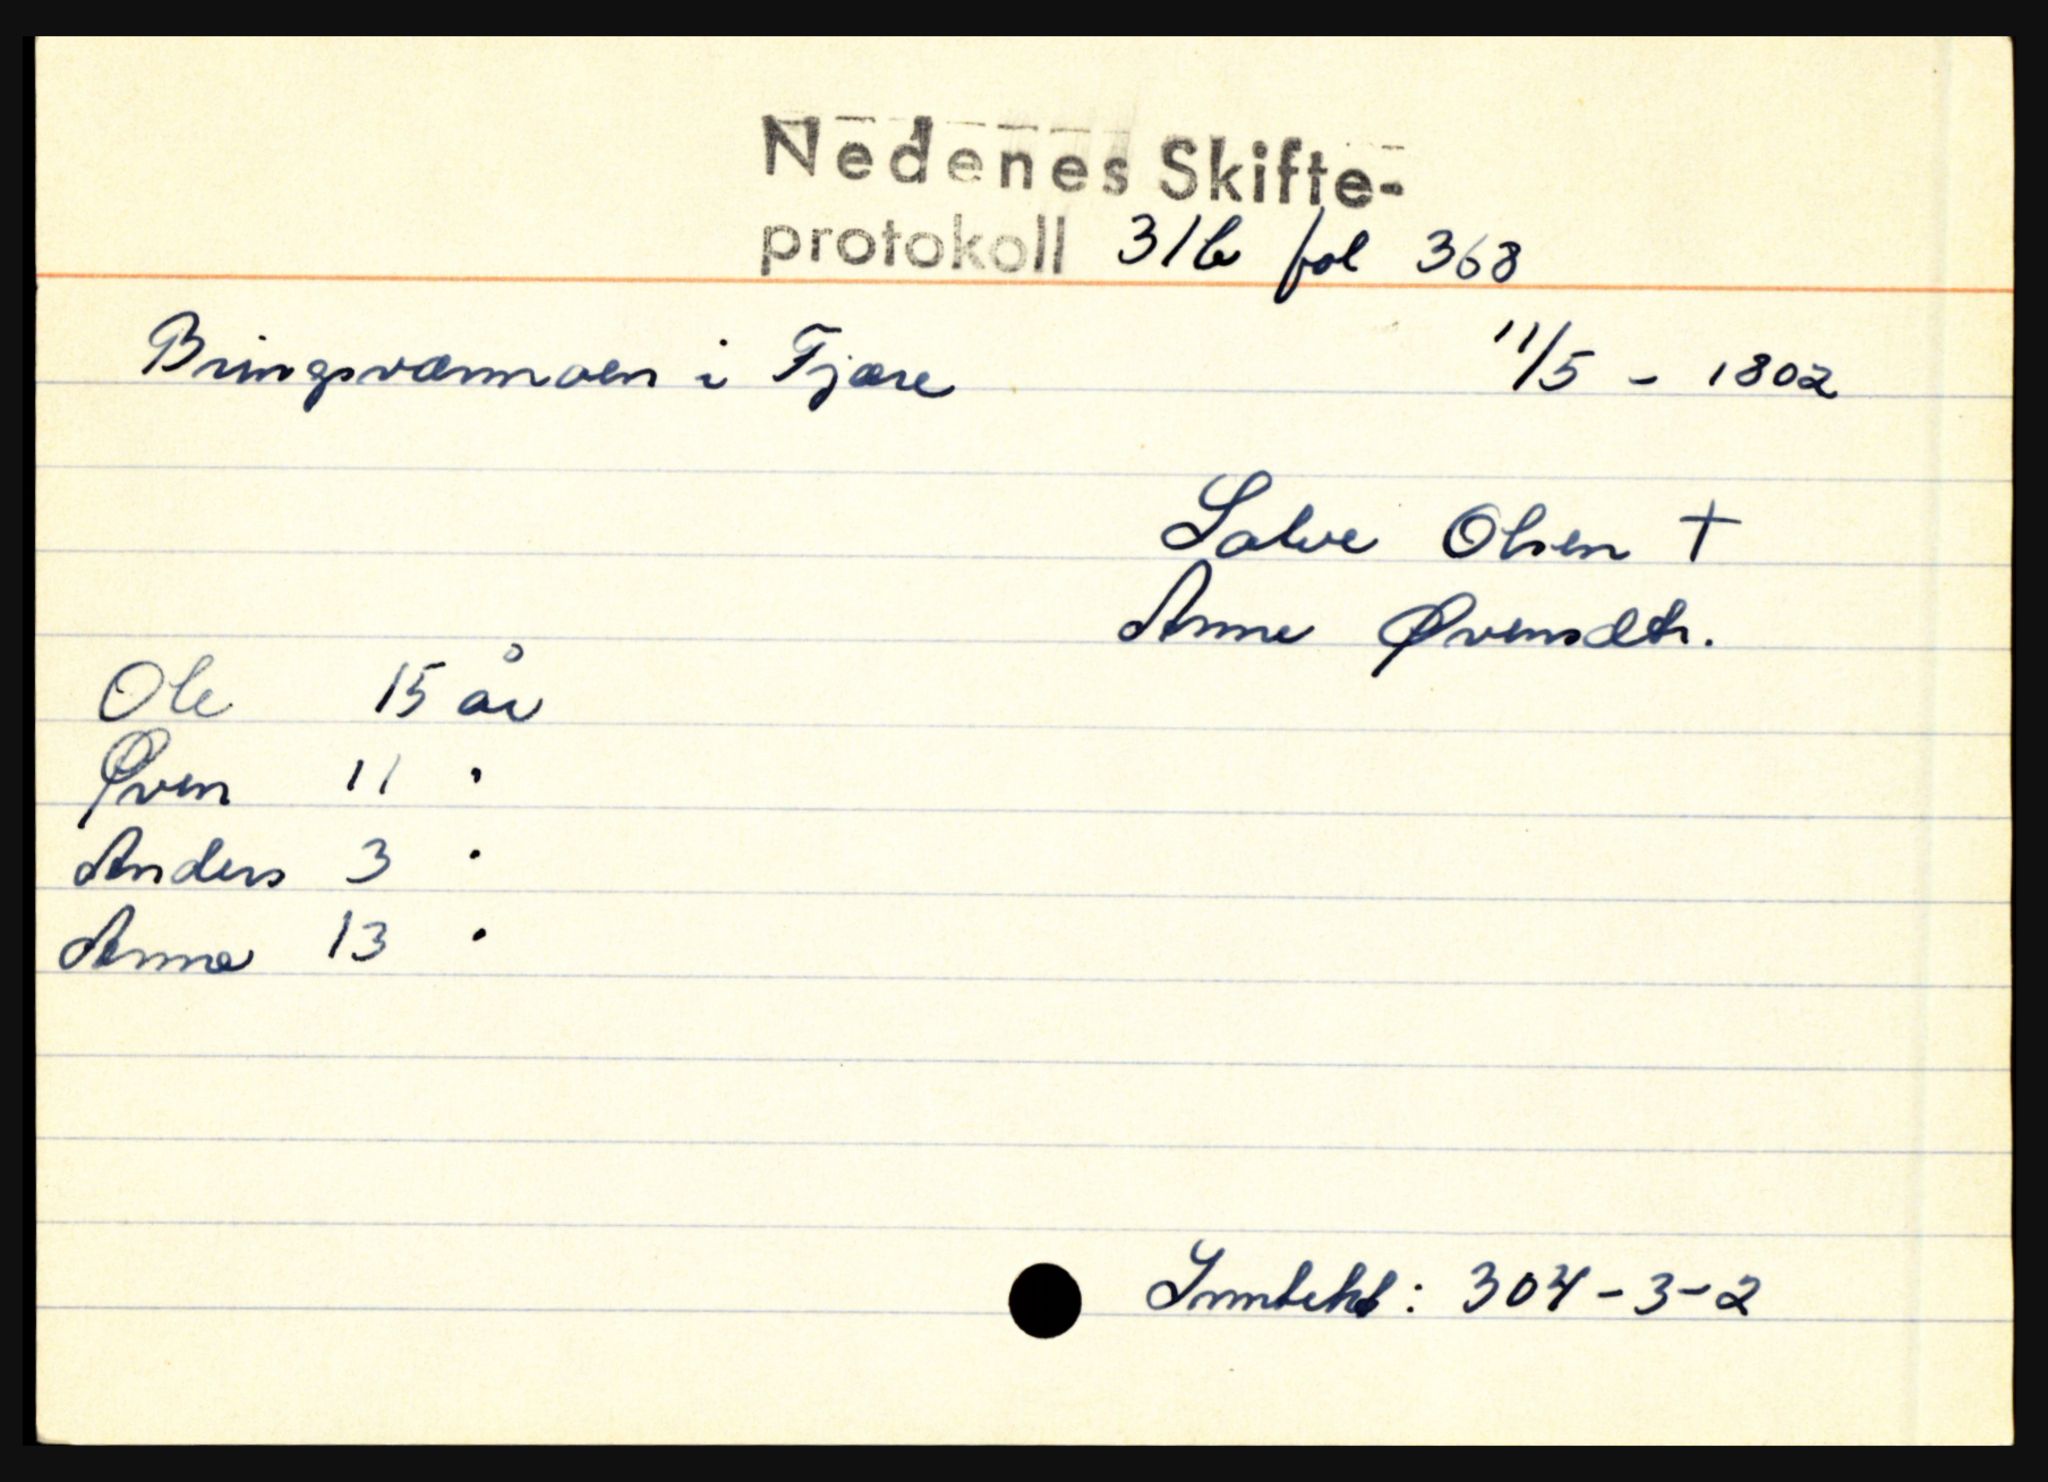 Nedenes Skifte-
protokoll 31b fol 368
Bringsværmoen i Fjære 11/5 - 1802
Salve Olsen †
Anne Øvensdtr.
Ole 15 år
Øven 11 "
Anders 3 "
Anne 13 "
Inntekt: 304-3-2